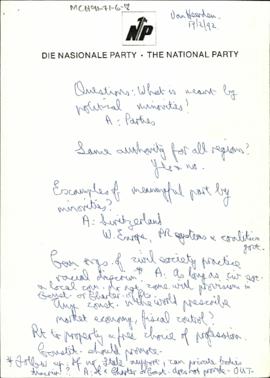 MCH91-71-6-8
Van Heerden
17/2/92
NP
DIE NASIONALE PARTY · THE NATIONAL PARTY
Questions: What is meant by
political minorities?
A: Parties
Same authority for all regions?
Yes & no.
Examples of meaningful part by
minorities?
A: Switzerland
W. Europe PR systems & coalition
govt.
Can orgs of civil society practice
racial discrim * A. As long as civ soc
Const. or Charter of
Any const. in the world prescribe
market economy, fiscal control?
Rt to property & free choice of profession.
Constit. should promote.
* Follow up. If no state support, can private bodies
discrim? A: If Charter & Const. does not provide - OUT.